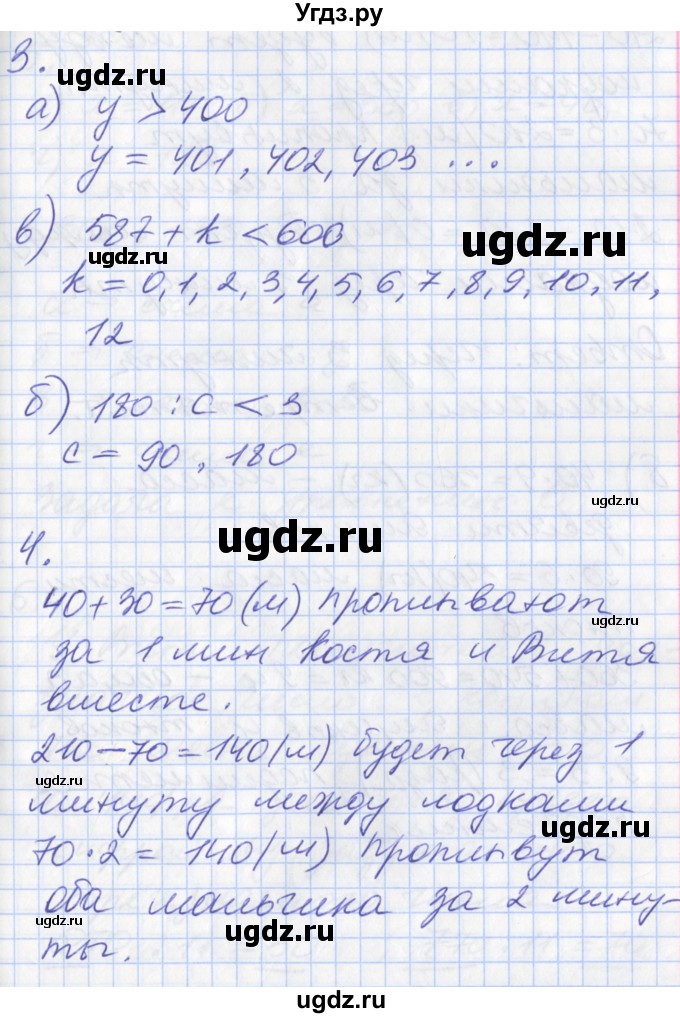 Угдз.ру
3.
ugdz.ru
а) y > 400
y = 401, 402, 403 ...
в) 587 + k < 600
ugdz.ru
ugdz.ru
k = 0, 1, 2, 3, 4, 5, 6, 7, 8, 9, 10, 11,
12
б) 180 : c < 3
c = 90, 180
ugdz.ru
ugdz.ru
4.
40 + 30 = 70 (м) проплывают
ugdz.ru
за 1 мин Костя и Витя
вместе.
210 - 70 = 140 (м) будет через 1
минуту между лодками
ugdz.ru
70 · 2 = 140 (м) проплывут
оба мальчика за 2 мину-
ugdz.ru
ты.
ugdz.ru